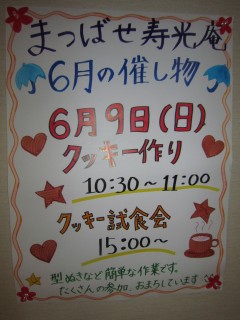 まつばせ寿光庵
6月の催し物
6月9日(日)
クッキー作り
10:30～11:00
クッキー試食会
15:00～
型ぬきなど簡単な作業です。
たくさんの参加、おまちしています